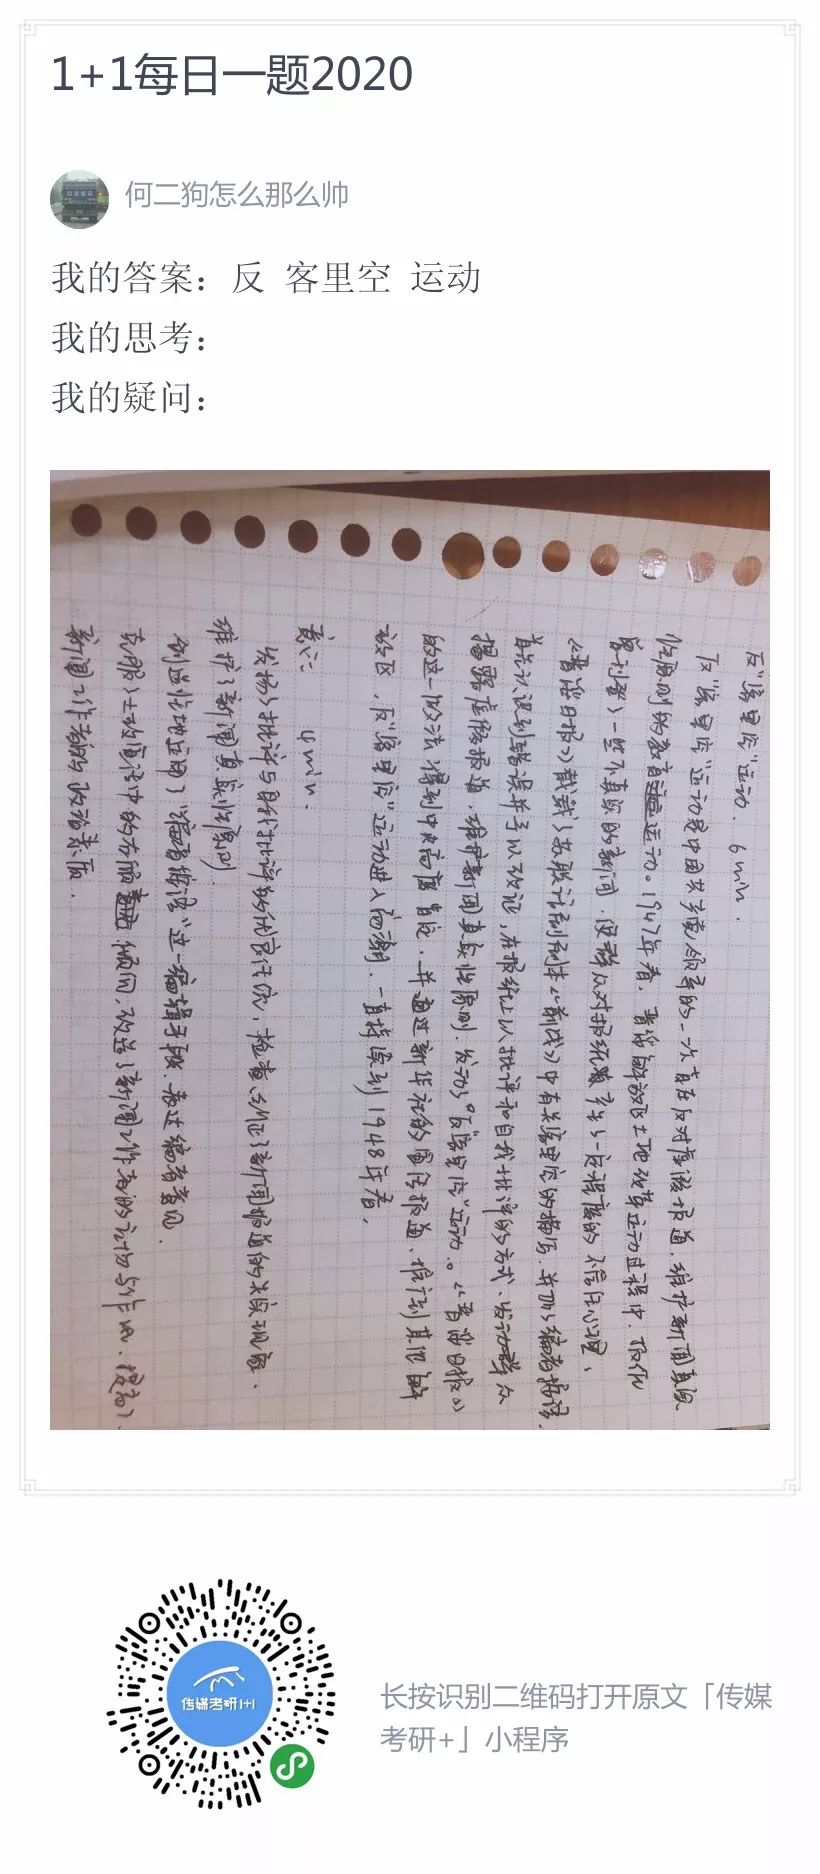 1+1每日一题2020
何二狗怎么那么帅
我的答案：反 客里空 运动
我的思考：
我的疑问：
反“客里空”运动. 6min.
反“客里空”运动是中国共产党领导的一次旨在反对虚假报道，维护新闻真实
性原则的教育运动。1947年春，晋绥解放区土地改革运动过程中，
客刊登了一些不真实的新闻，使群众对报纸产生了一定程度的不信任心理，
《晋绥日报》裁截了苏联话剧剧本《前线》中有关客里空的描写，并加了编者按语，
认识到错误并予以改正，在报纸上以批评和自我批评的方式、发动群众
揭露虚假报道，维护新闻真实性原则，发动了“反客里空”运动。《晋绥日报》
的这一做法得到中央高度肯定，并通过新华社的宣传报道，推行到其他解
放区，反“客里空”运动进入高潮，一直持续到1948年春，
意义： 4min.
发扬了批评与自我批评的优良作风，检查纠正了新闻报道的失实现象.
维护了新闻真实性原则.
创造性地运用了“编者按语”这一编辑手段，表达编者意见.
克服了土改宣传中的右倾倾向，改造了新闻工作者的立场与作风，提高了
新闻工作者的政治素质.
传媒考研1+1
长按识别二维码打开原文「传媒
考研+」小程序